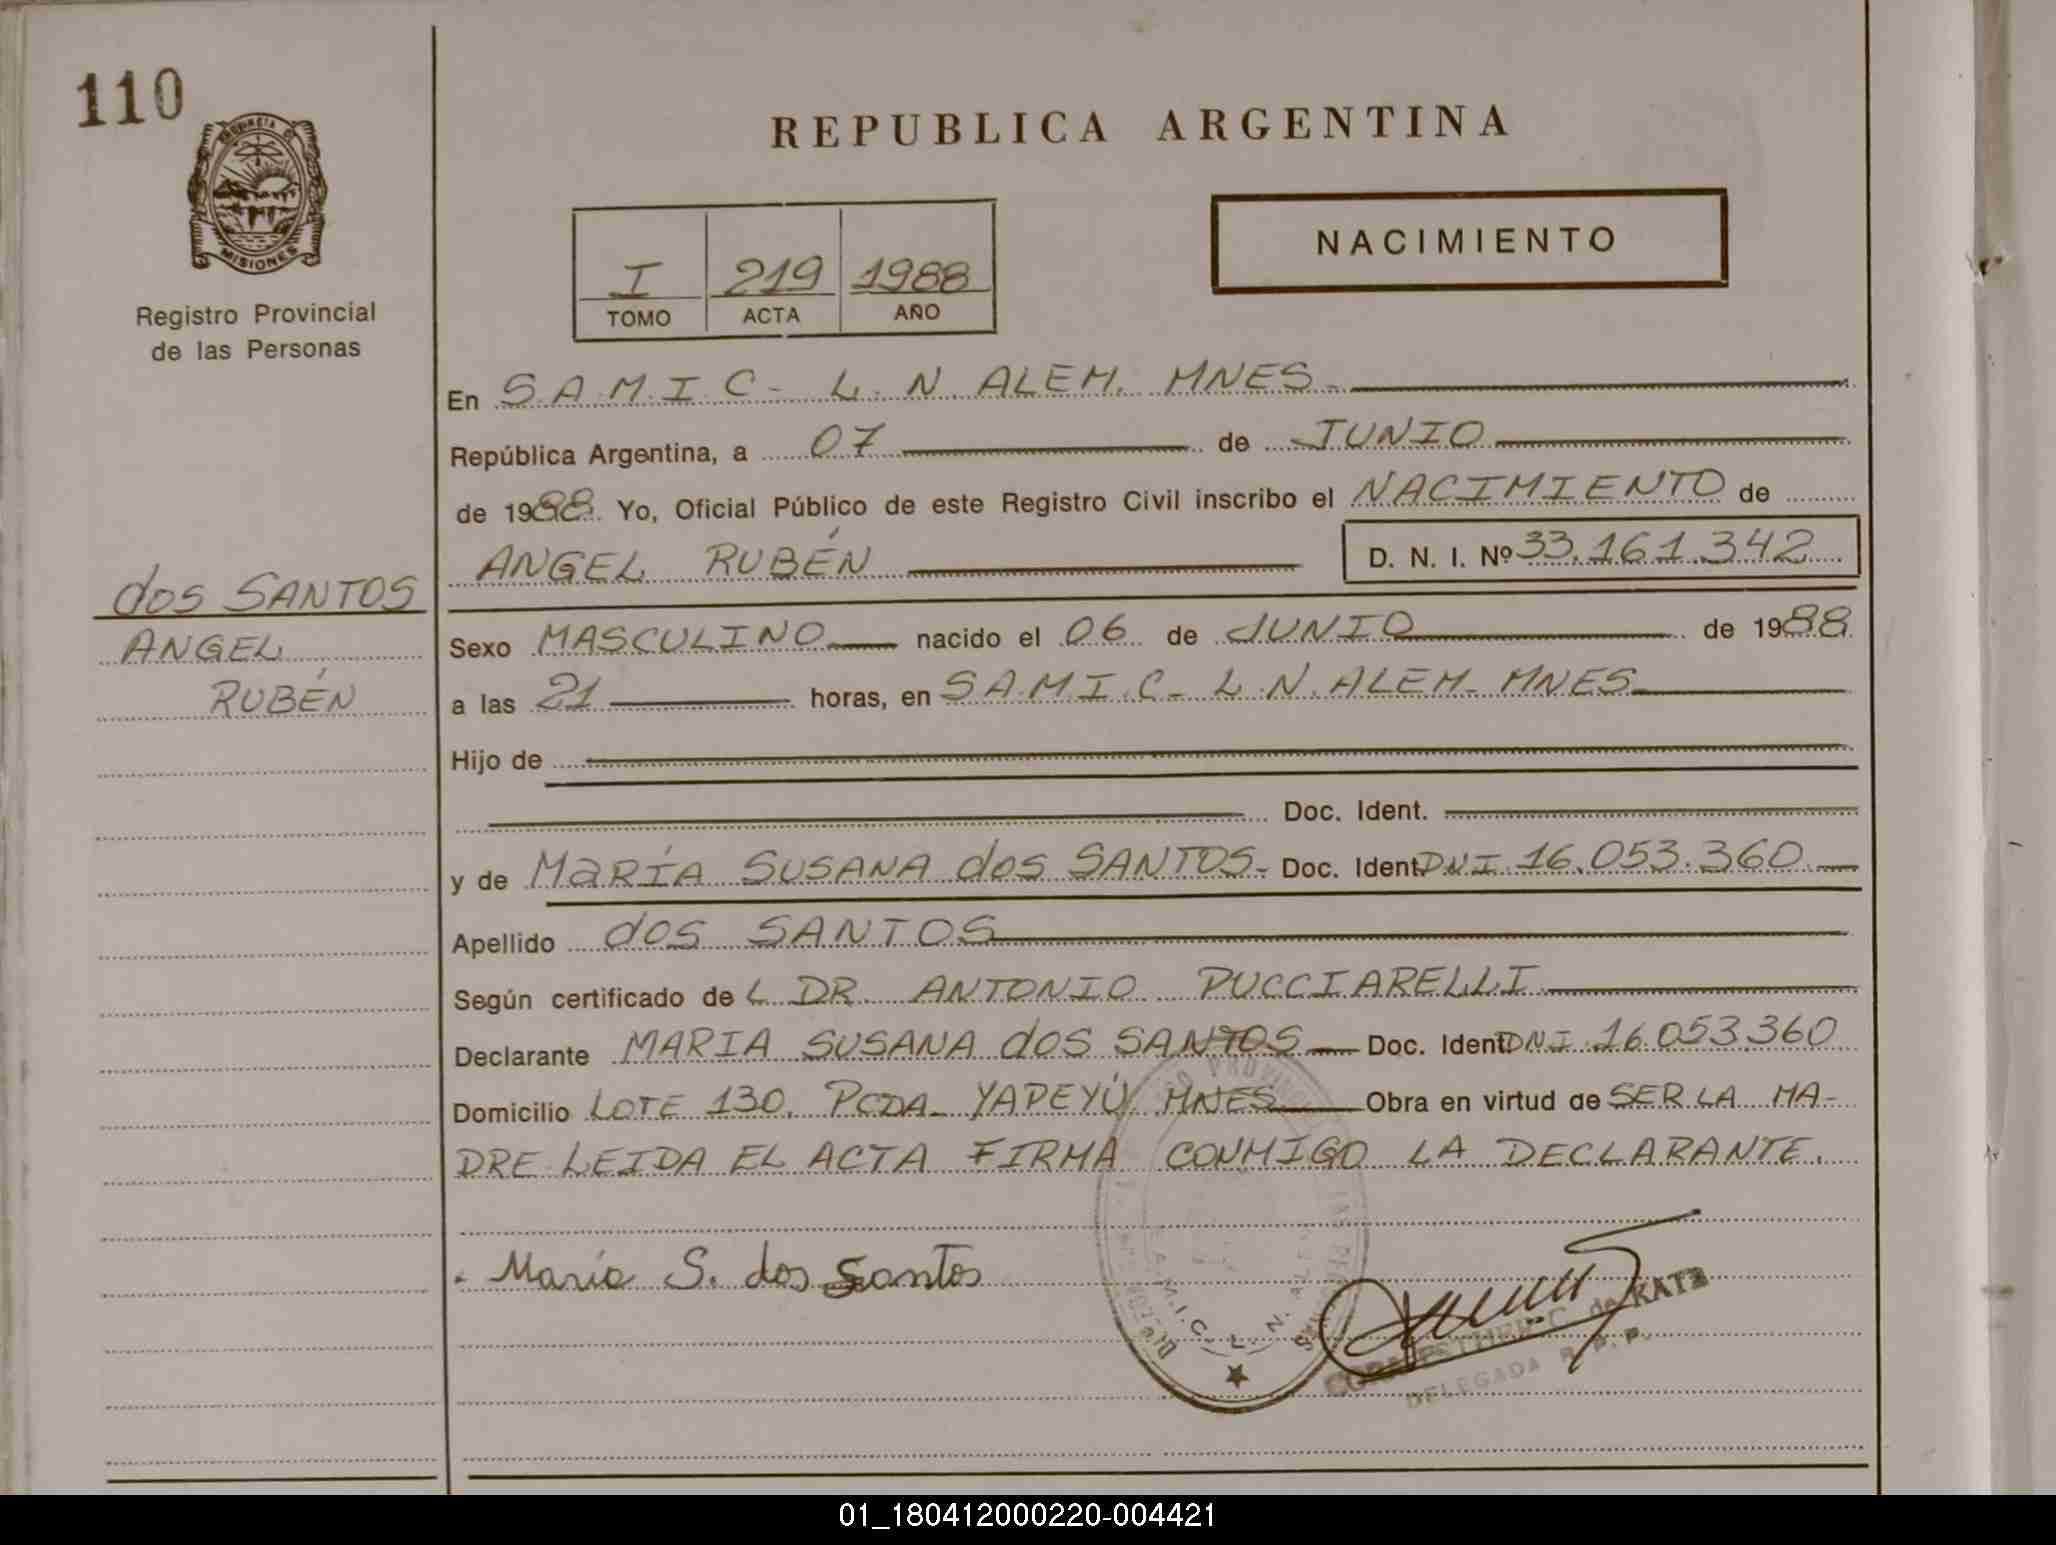 110
PROVINCIA DE
MISIONES
Registro Provincial
de las Personas
dos SANTOS
ANGEL
RUBÉN
REPUBLICA ARGENTINA
I 219 1988
TOMO ACTA AÑO
NACIMIENTO
En S.A.M.I.C- L.N. ALEM. MNES-
República Argentina, a 07 de JUNIO
de 1988. Yo, Oficial Público de este Registro Civil inscribo el NACIMIENTO de
ANGEL RUBÉN D. N. I. Nº 33.161.342
Sexo MASCULINO nacido el 06 de JUNIO de 1988
a las 21 horas, en S.A.M.I.C- L.N. ALEM- MNES
Hijo de
Doc. Ident.
y de MaRÍA SUSANA dos SANTOS- Doc. Ident. DNI 16.053.360
Apellido dos SANTOS
Según certificado de L DR. ANTONIO PUCCIARELLI
Declarante MARIA SUSANA dos SANTOS Doc. Ident. DNI 16.053.360
Domicilio LOTE 130. PCDA- YAPEYÚ MNES Obra en virtud de SER LA MA-
DRE LEIDA EL ACTA FIRMA CONMIGO LA DECLARANTE.
María S. dos Santos
S.A.M.I.C. L. N.
C. de KATZ
DELEGADA R. P. P.
01_180412000220-004421